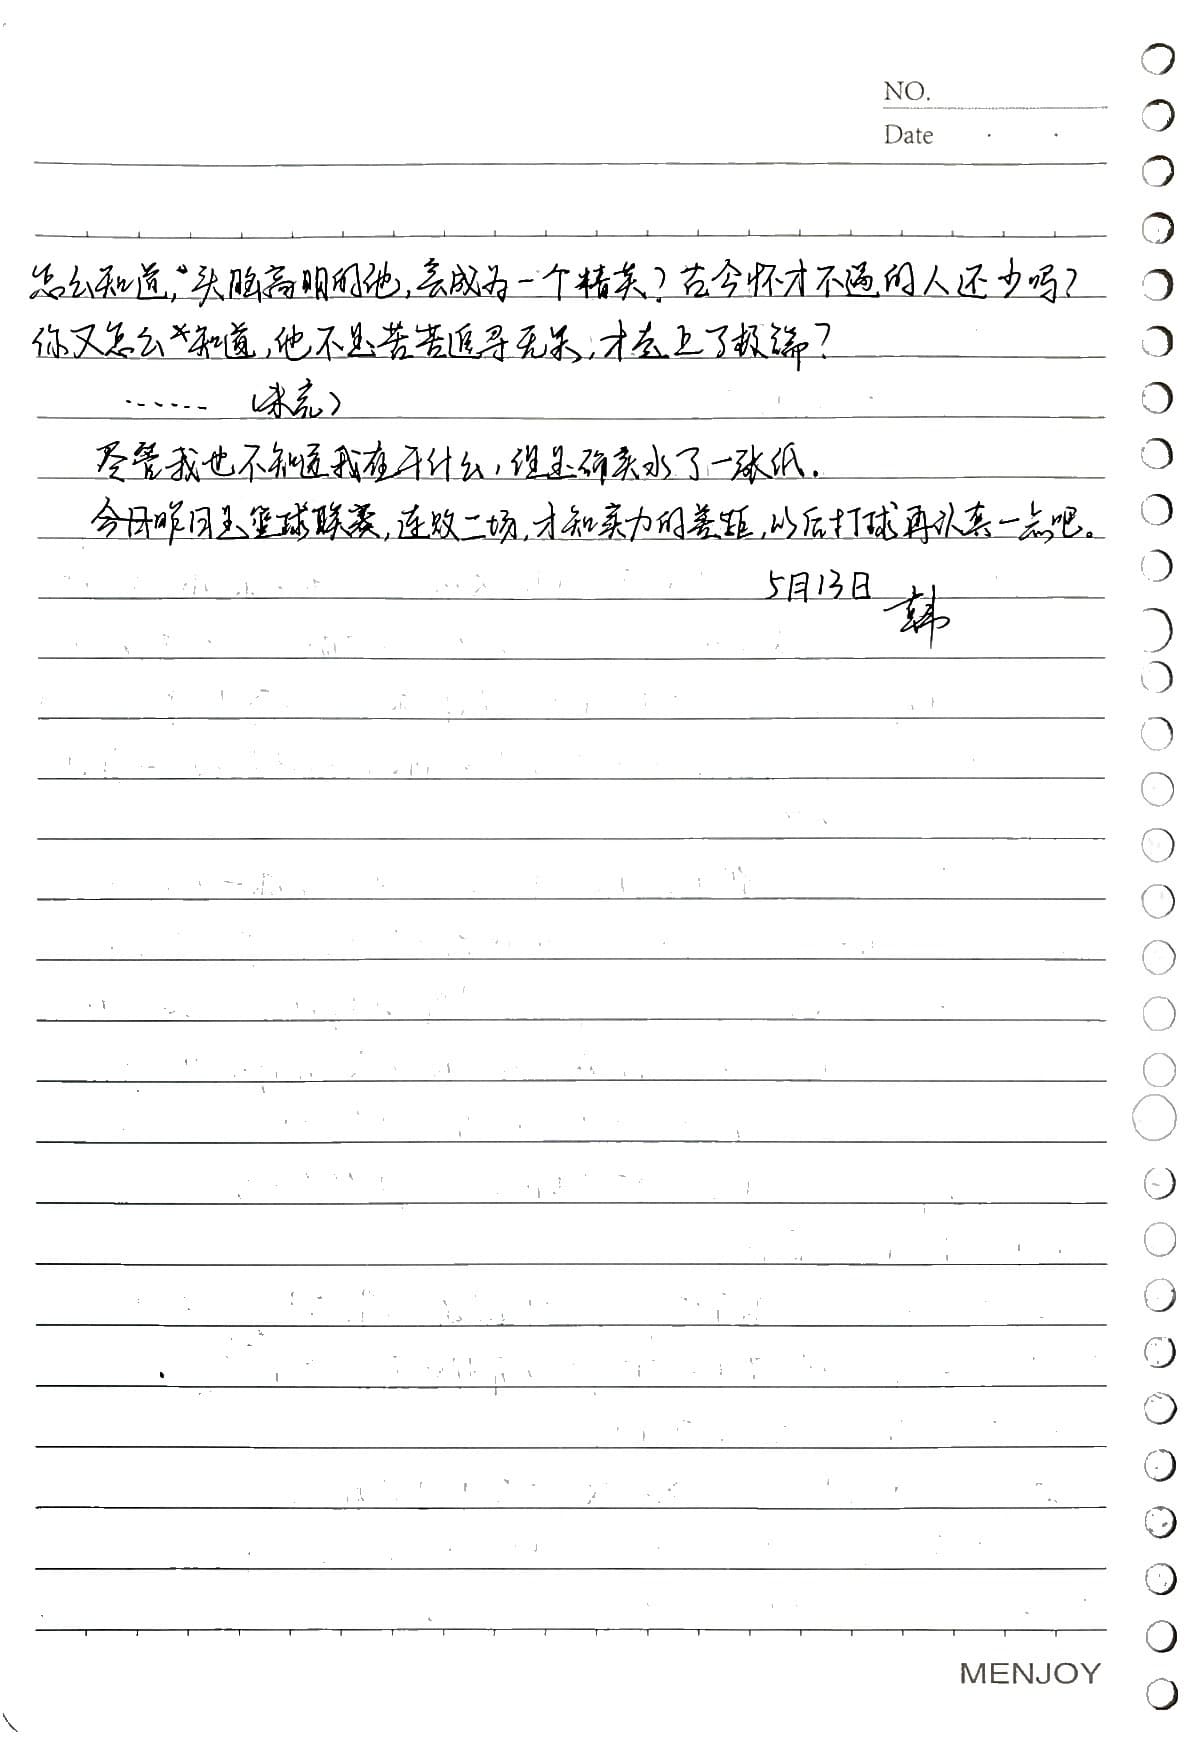 NO.
Date
怎么知道,头脑高明的他,会成为一个精英?古今怀才不遇的人还少吗?
你又怎么知道,他不是苦苦追寻无果,才会上了极端?
…… (未完)
尽管我也不知道我在干什么,但是确实水了一张纸.
今日昨日是篮球联赛,连败二场,才知实力的差距,以后打球再认真一点吧。
5月13日 韩
MENJOY